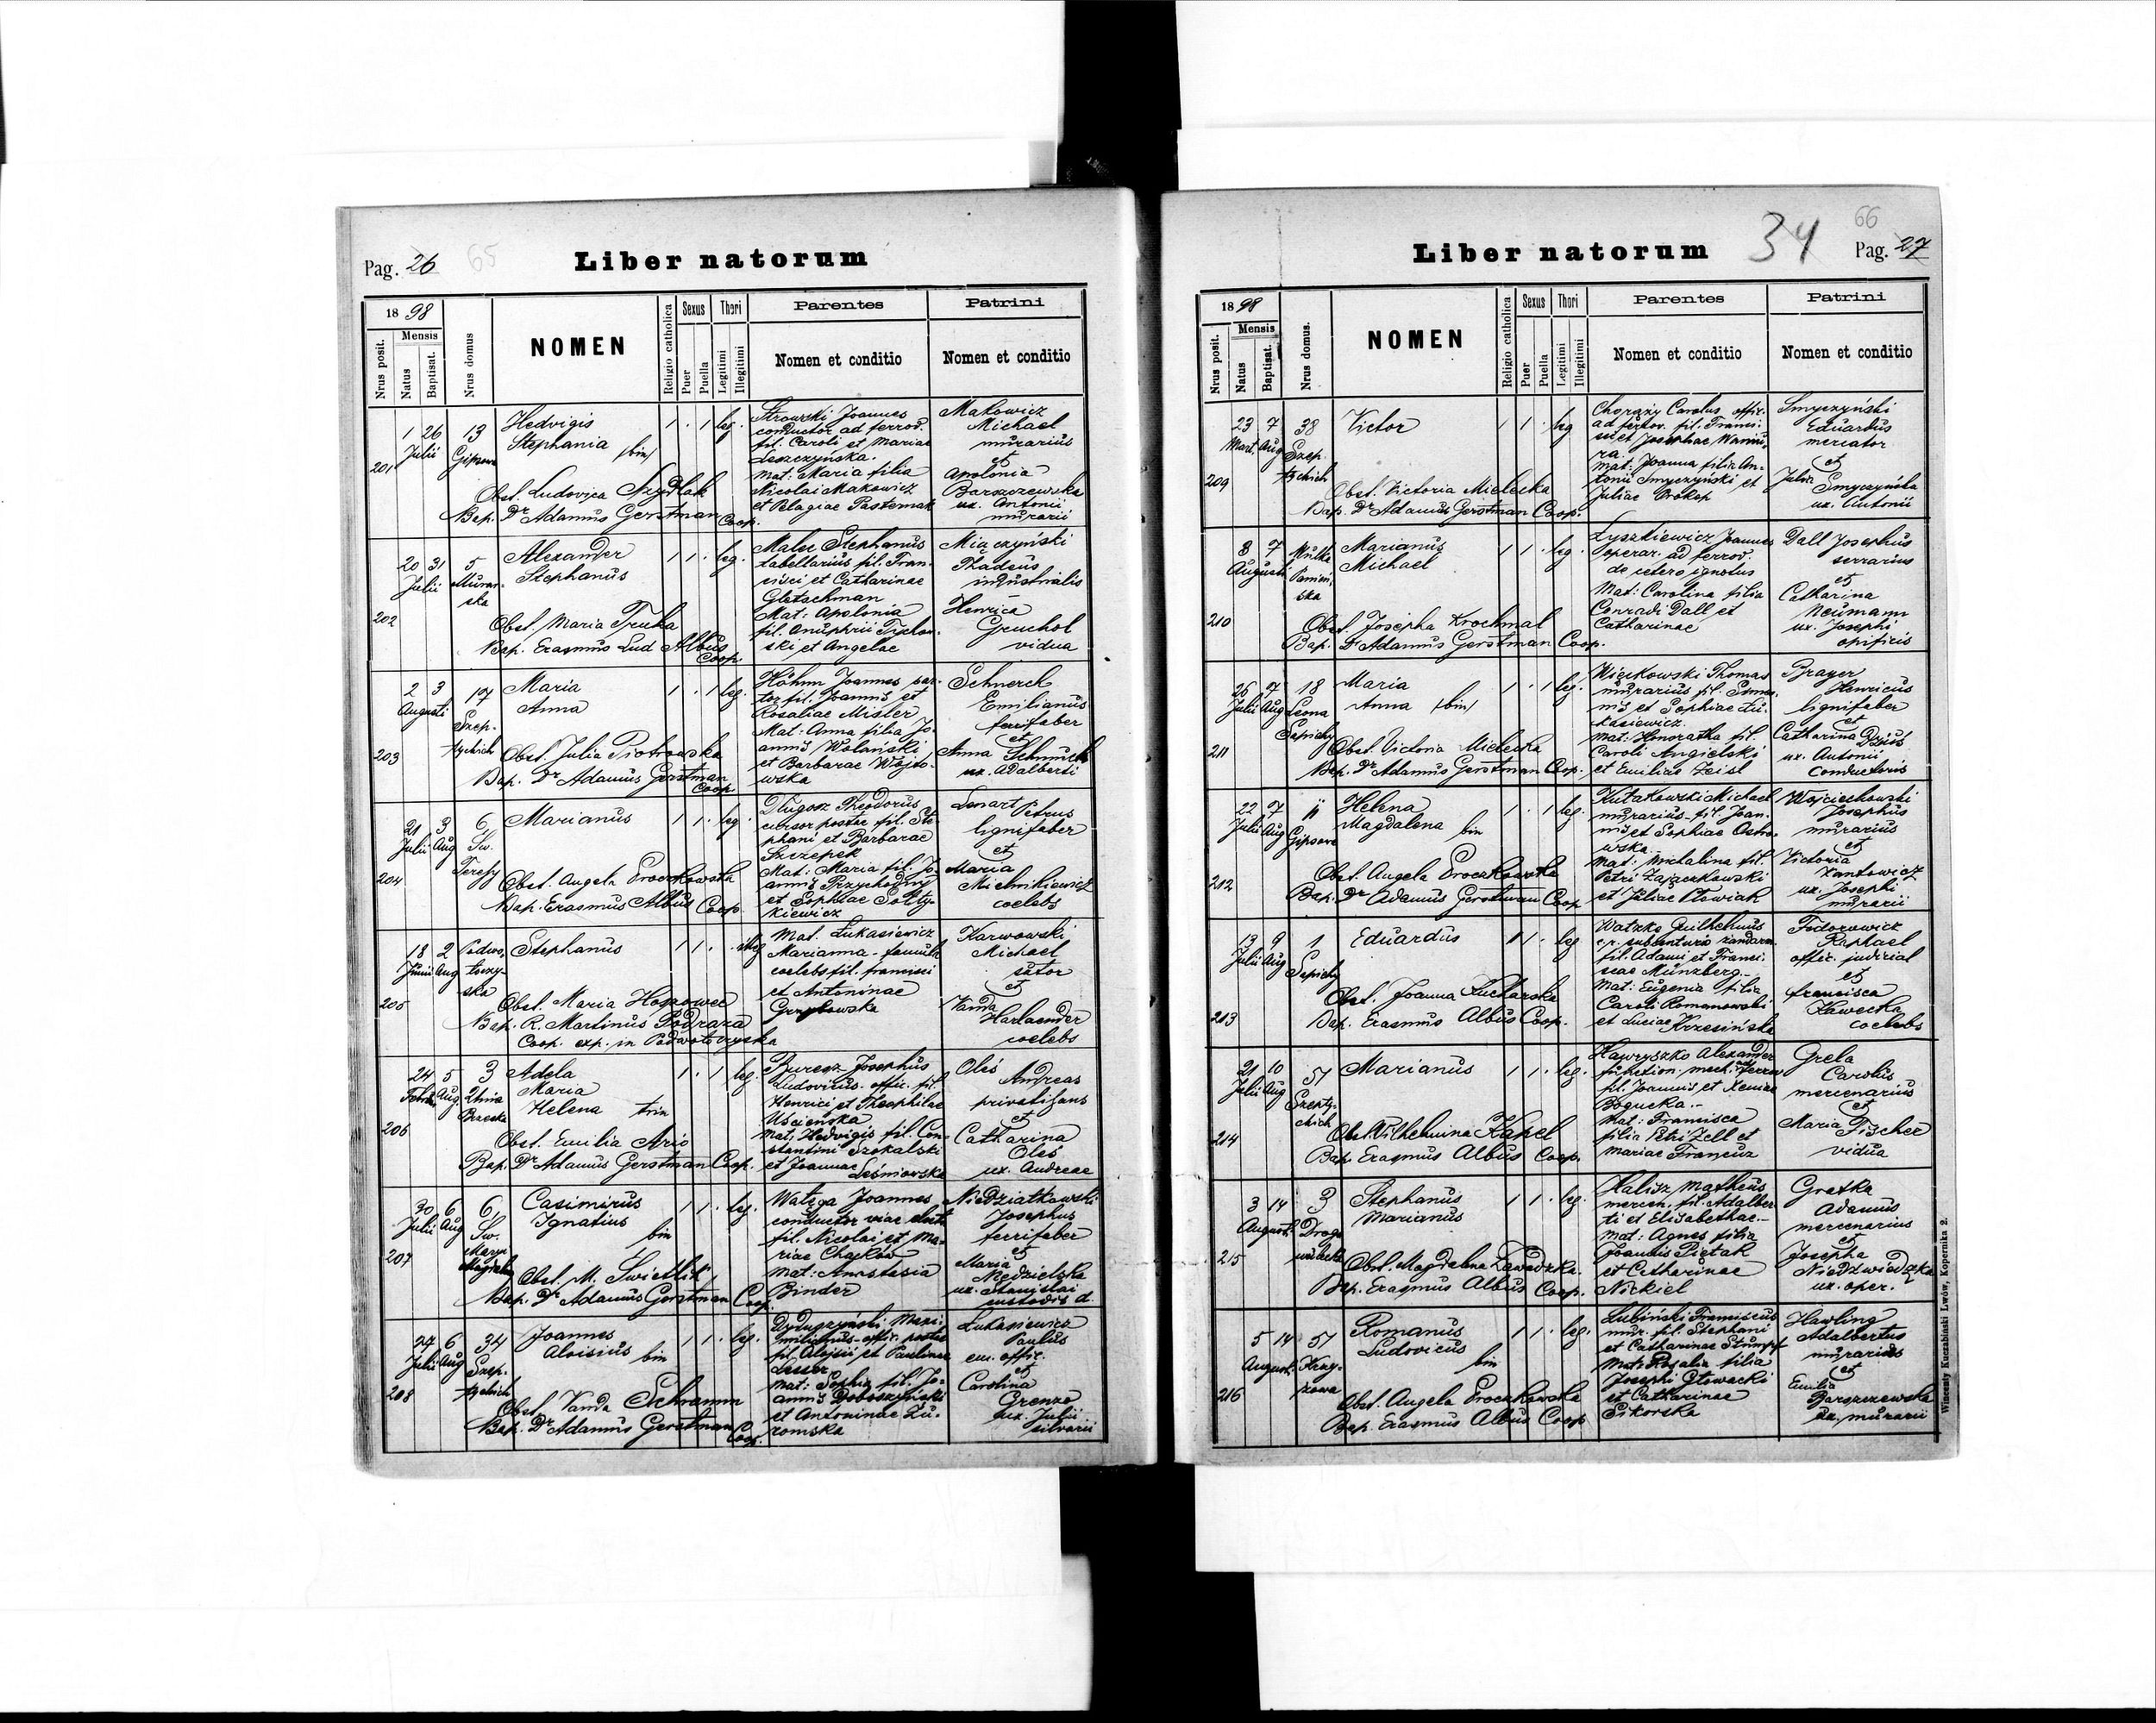 Pag. 26 65
Liber natorum
1898
Mensis
Nrus posit.
Natus
Baptisat.
Nrus domus
NOMEN
Religio catholica
Sexus
Puer
Puella
Thori
Legitimi
Illegitimi
Parentes
Nomen et conditio
Patrini
Nomen et conditio
201
1 26
Julii
13
Hedvigis
Stephania /bin/
Obst. Ludovica Szydlak
Bap. Dr Adamus Gerstman Coop.
1 . 1 leg.
Strowski Joannes
conductor ad ferrov.
fil. Caroli et Mariae
Leszczyńska.
Mat: Maria filia
Nicolai Makowicz
et Pelagiae Pasternak
Makowicz
Michael
murarius
et
Apolonia
Barszczewska
ux. Antonii
murarii
202
20 31
Julii
5
Muran-
ska
Alexander
Stephanus
Obst. Maria Truka
Bap. Erasmus Lud Albus
Coop.
1 1 . leg.
Malec Stephanus
tabellarius fil. Fran-
cisci et Catharinae
Gletschman
Mat: Apolonia
fil. Onuphrii Tychow-
ski et Angelae
Miączyński
Thadeus
industrialis
Henrica
Gruchol
vidua
203
2 3
Augusti
17
Szep-
tyckich
Maria
Anna
Obst. Julia Piotrowska
Bap. Dr Adamus Gerstman
Coop.
1 . 1 leg.
Höhm Joannes sar-
tor fil. Joannis et
Rosaliae Misler
Mat: Anna filia Jo-
annis Wolański
et Barbarae Wójto-
wska
Schnerch
Emilianus
ferrifaber
et
Anna Schnerch
ux. Adalberti
204
21 3
Julii Aug
6
Św.
Teresy
Marianus
Obst. Angela Proczkowska
Bap. Erasmus Albus Coop.
1 1 . leg.
Długosz Theodorus
cursor postae fil. Ste-
phani et Barbarae
Szczepek
Mat: Maria fil. Jo-
annis Przychodny
et Sophiae Sołty-
kiewicz
Lenart Petrus
lignifaber
et
Maria
Michnikiewicz
coelebs
205
18 2
Junii Aug
Podwo-
łoczy-
ska
Stephanus
Obst. Maria Hoszowec
Bap. R. Martinus Podraza
Coop. exp. in Podwołoczyska
1 1 . . illeg
Mat. Łukasiewicz
Marianna - famula
coelebs fil. Francisci
et Antoninae
Grzybowska
Karwowski
Michael
sutor
et
Vanda
Harlaender
coelebs
206
24 5
Febr. Aug
3
Adela
Maria
Helena trin
Obst. Emilia Ario
Bap. Dr Adamus Gerstman Coop.
1 . 1 leg.
Buresz Josephus
Ludovicus. offic. fil.
Henrici et Theophilae
Uścieńska
Mat. Hedvigis fil. Con-
stantini Szokalski
et Joannae
Leśniowska
Oleś
Andreas
privatisans
et
Catharina
Oleś
ux. Andreae
207
30 6
Julii Aug
6
Św.
Maryi
Magdalen
Casimirus
Ignatius
bin
Obst. M. Swietlik
Bap. Dr Adamus Gerstman
Coop.
1 1 . leg.
Watęga Joannes
conductor viae electr.
fil. Nicolai et Ma-
riae Charków
Mat: Anastasia
Binder
Niedziatkowski
Josephus
ferrifaber
et
Maria
Niedzielska
ux. Stanislai
custodis d.
208
27 6
Julii Aug
34
Szep-
tyckich
Joannes
Aloisius bin
Obst. Vanda Schramm
Bap. Dr Adamus Gerstman
Coop.
1 1 . leg.
Dyduszyński Maxi-
milianus - offic. postae
fil. Aloisii et Paulinae
Lesser
Mat: Sophia fil. Jo-
annis Doboszyński
et Antoninae Żu-
romska
Łukasiewicz
Paulus
em. offic.
et
Carolina
Grenze
ux. Julii
silvarii
34 66
Liber natorum
Pag. 27
1898
Mensis
Nrus posit.
Natus
Baptisat.
Nrus domus.
NOMEN
Religio catholica
Sexus
Puer
Puella
Thori
Legitimi
Illegitimi
Parentes
Nomen et conditio
Patrini
Nomen et conditio
209
23 7
Mart. Aug
38
Szep-
tyckich
Victor
Obst. Victoria Mielecka
Bap. Dr Adamus Gerstman Coop.
1 1 . leg
Chorąży Carolus, offic.
ad ferrov. fil. Franci-
sci et Josephae
Mat: Joanna filia An-
tonii Smyczyński et
Juliae Prokop
Smyczyński
Eduardus
mercator
et
Julia Smyczyńska
ux. Antonii
210
3 7
Augusti
Marianus
Michael
Obst. Josepha Krochmal
Bap. Dr Adamus Gerstman Coop.
1 1 . leg.
Łyszkiewicz Joannes
operar. ad ferrov.
de cetero ignotus
Mat: Carolina filia
Conradi Dall et
Catharinae
Dall Josephus
serrarius
et
Catharina
Neumann
ux. Josephi
opificis
211
26 7
Julii Aug
18
Leona
Sapiehy
Maria
Anna /bin/
Obst. Victoria Mielecka
Bap. Dr Adamus Gerstman Coop.
1 . 1 leg.
Więckowski Thomas
murarius fil.
et Sophiae Łu-
kasiewicz.
Mat: Honoratha fil.
Caroli Angielski
et Emiliae Zeisl
Brayer
Henricus
lignifaber
et
Catharina Dziuś
ux. Antonii
conductoris
212
22 7
Julii Aug
11
Gipsowa
Helena
Magdalena bin
Obst. Angela Proczkowska
Bap. Dr Adamus Gerstman Coop
1 . 1 leg.
Kutakowski Michael
murarius - fil. Joan-
nis et Sophiae Ostro-
wska.
Mat: Michalina fil.
Petri Zajączkowski
et Juliae Płowiak
Wojciechowski
Josephus
murarius
et
Victoria
Xantowicz
ux. Josephi
murarii
213
13 9
Julii Aug
1
Sapiehy
Eduardus
Obst. Joanna Kucharska
Bap. Erasmus Albus Coop.
1 1 . leg
Watzko Guilhelmus
fil. Adami et Franci-
scae Münzberg.-
Mat: Eugenia filia
Caroli Romanowski
et Luciae Krzesińska
Fedorowicz
Raphael
offic. judicial
et
Francisca
Kawecka
coelebs
214
21 10
Julii Aug
51
Szepty-
ckich
Marianus
Obst. Wilhelmina Kapel
Bap. Erasmus Albus Coop.
1 1 . leg.
Hawryszko Alexander
function. mech. ferrov
fil. Joannis et Xeniae
Bogucka.-
Mat: Francisca
filia Petri Zell et
Mariae Francuz
Grela
Carolus
mercenarius
et
Maria Fischer
vidua
215
3 14
August.
3
Stephanus
Marianus
Obst. Magdalena Zawadzka.
Bap. Erasmus Albus Coop.
1 1 . leg.
Kalisz Matheus
mercen. fil. Adalber-
ti et Elisabethae.-
Mat: Agnes filia
Joannis Piętak
et Catharinae
Nickiel
Gratka
Adamus
mercenarius
et
Josepha
Niedzwiedzka
ux. oper.
216
5 14
August.
51
Krzy-
żowa
Romanus
Ludovicus
bin
Obst. Angela Proczkowska
Bap. Erasmus Albus Coop
1 1 . leg.
Lubiński Franciscus
mur. fil. Stephani
et Catharinae Stumpf
Mat: Rosalia filia
Josephi Głowacki
et Catharinae
Sikorska
Hawling
Adalbertus
murarius
et
Emilia
Barszczewska
ux. murarii
Wincenty Kuczabiński Lwów, Kopernika 2.